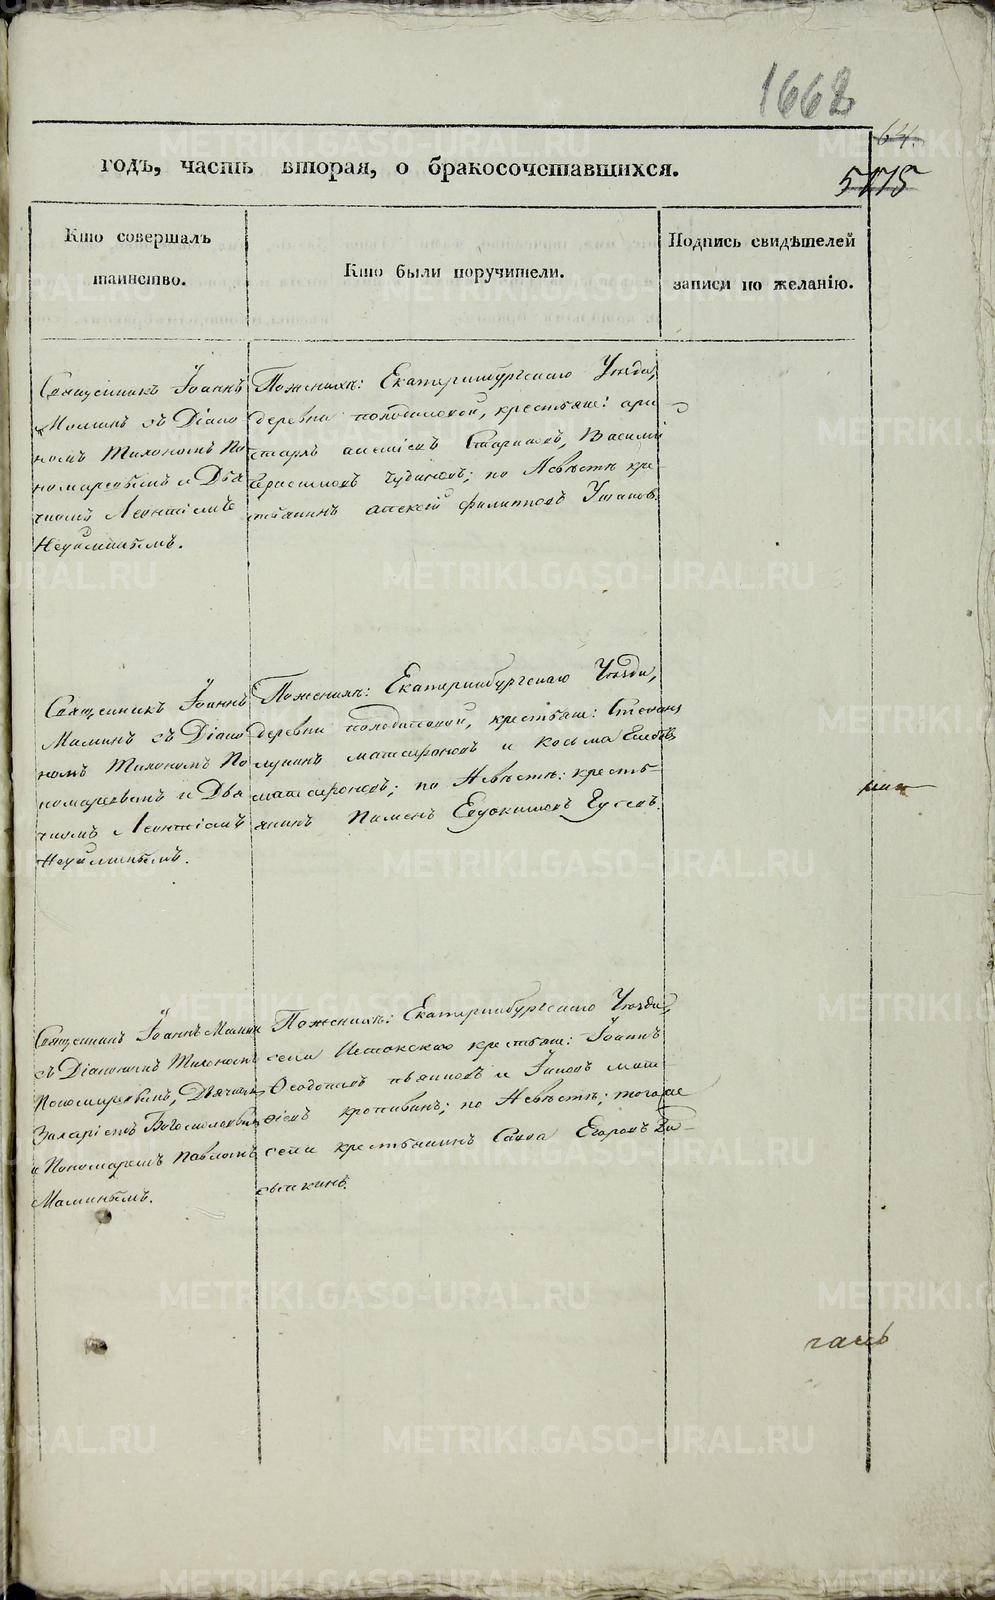 1662
64.
5175
годъ, часть вторая, о бракосочетавшихся.
Кто совершалъ
таинство.
Кто были поручители.
Подпись свидѣтелей
записи по желанію.
Священникъ Іоаннъ
Маминъ съ Діако
номъ Тихономъ По
номаревымъ и Дья
чкомъ Леонтіемъ
Неуйминымъ.
По женихѣ: Екатеринбургскаго Уѣзда,
деревни крестьяне:
Василій
Герасимовъ Чудиновъ; по Невѣстѣ кре
стьянинъ Филиповъ Ушаковъ.
Священникъ Іоаннъ
Маминъ съ Діако
номъ Тихономъ По
номаревымъ и Дья
чкомъ Леонтіемъ
Неуйминымъ.
По женихѣ: Екатеринбургскаго Уѣзда,
деревни крестьяне: Степанъ
и Козьма
по Невѣстѣ: кресть-
янинъ Пименъ Евдокимовъ Гусевъ.
Священникъ Іоаннъ Маминъ
съ Діакономъ Тихономъ
Пономаревымъ, Дьячкомъ
Захаріемъ Богомоловымъ
и Пономаремъ Павломъ
Маминымъ.
По женихѣ: Екатеринбургскаго Уѣзда,
села Истокскаго крестьяне: Іоаннъ
Ѳедоровъ Пьянковъ и Мат
ѳіевъ Кропивинъ; по Невѣстѣ: того же
села крестьянинъ Савва Егоровъ
METRIKI.GASO-URAL.RU